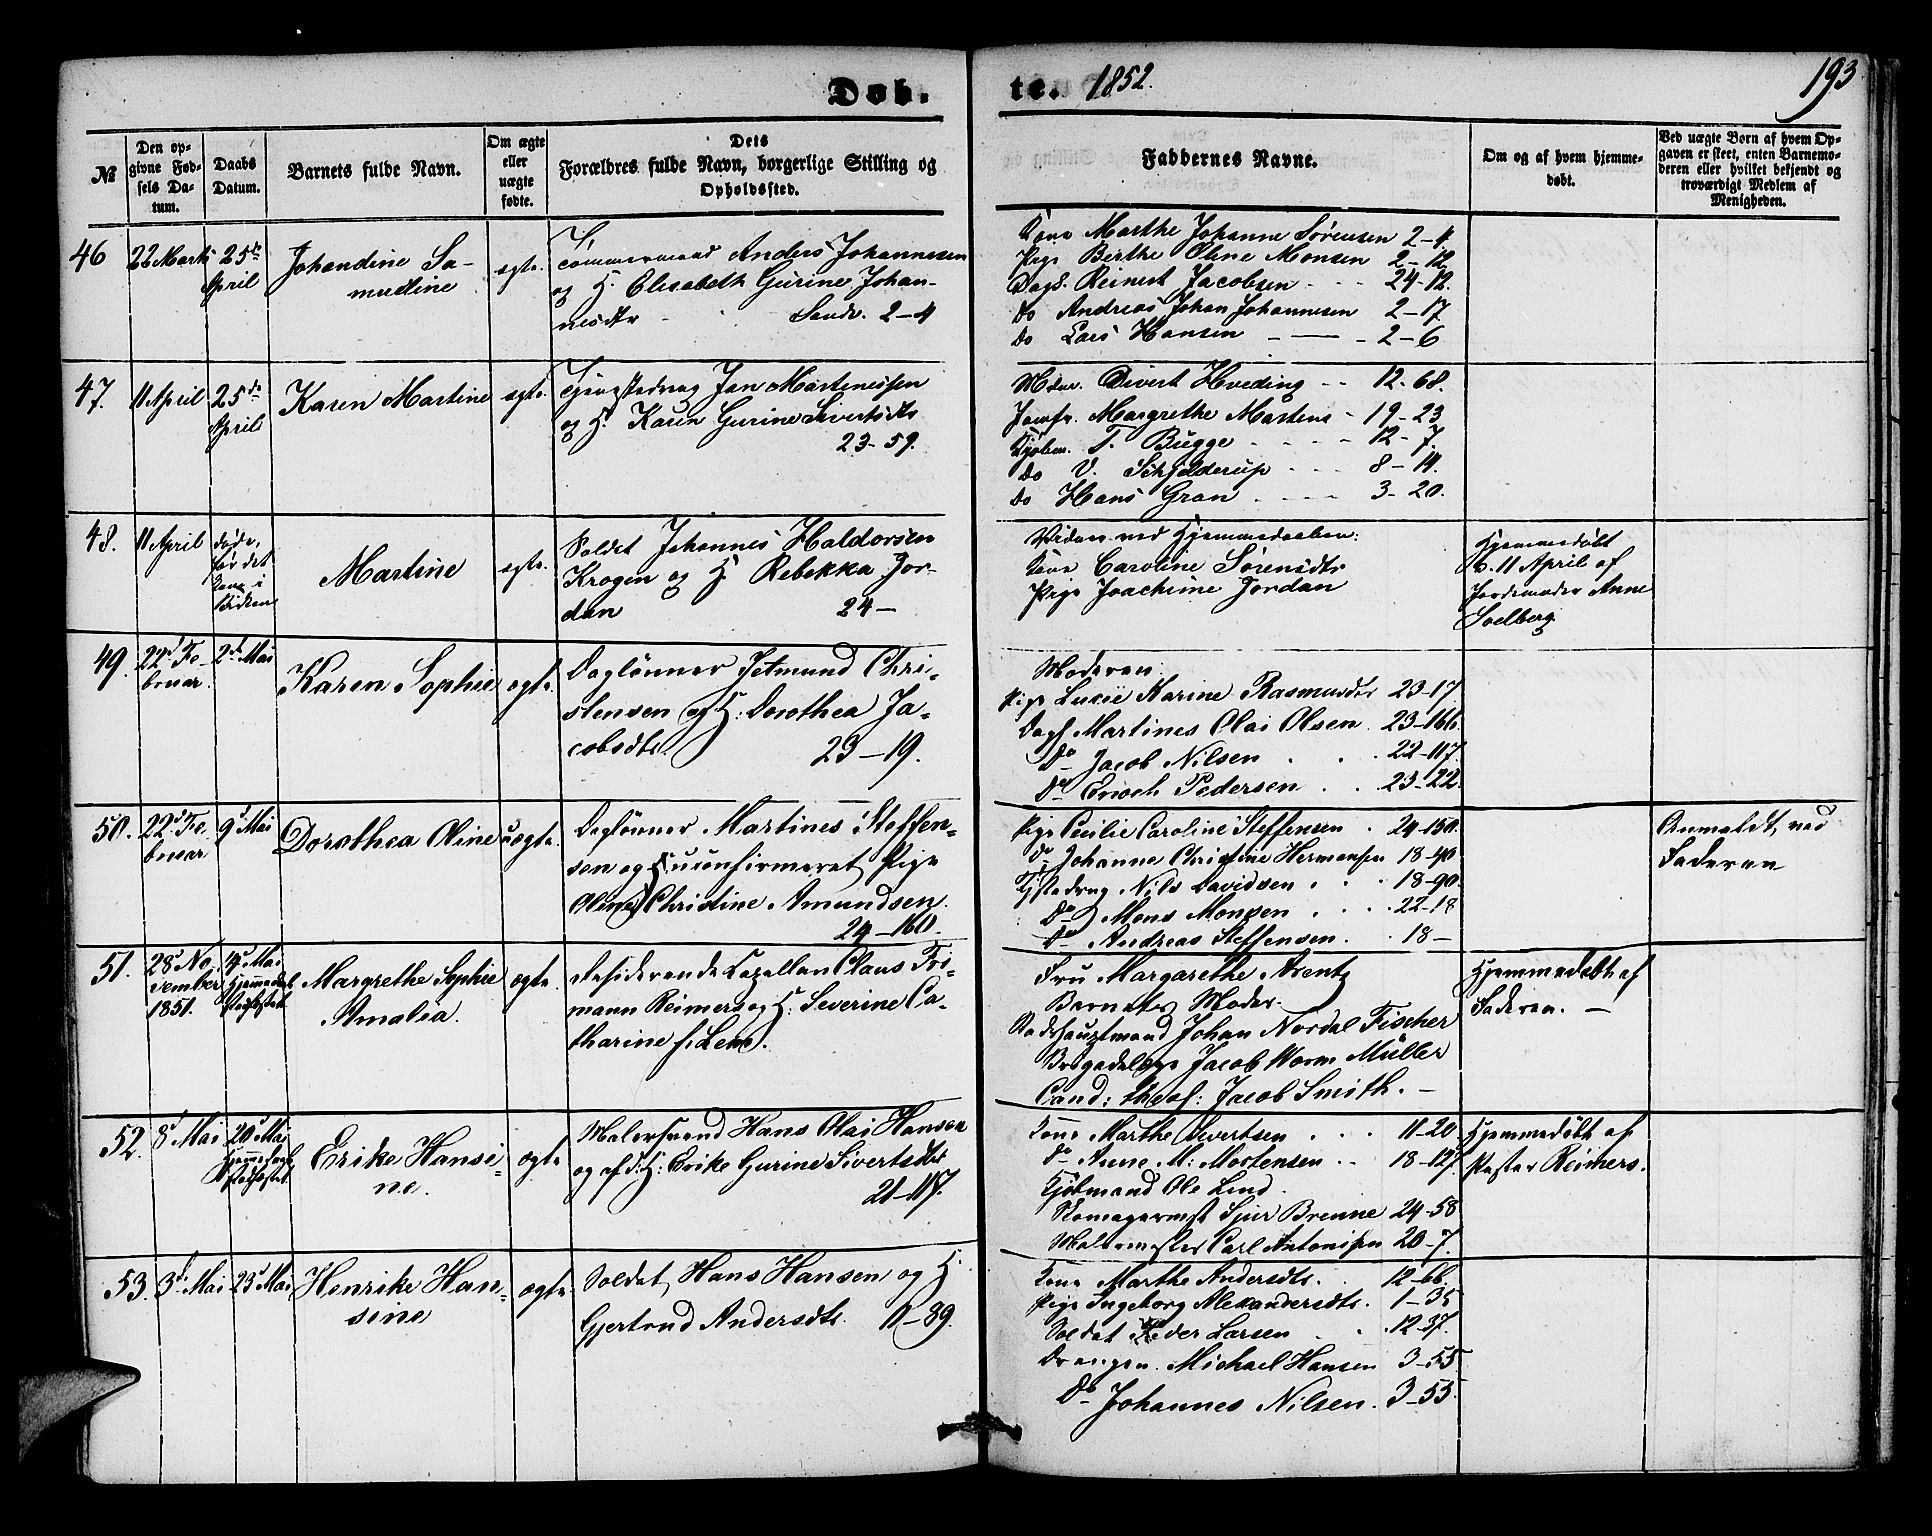 Døb.
te. 1852.
193
№
Den op-
givne Fød-
sels Da-
tum.
Daabs
Datum.
Barnets fulde Navn.
Om ægte
eller
uægte
fødte.
Dets
Forældres fulde Navn, borgerlige Stilling og
Opholdssted.
Faddernes Navne.
Om og af hvem hjemme-
døbt.
Ved uægte Børn af hvem Op-
gaven er skeet, enten Barnemo-
deren eller hvilket bekjendt og
troværdigt Medlem af
Menigheden.
46
22 Marts
25de
April
Johandine Sa-
mueline
egte.
Tømmermand Anders Johannesen
og H. Elisabeth Gurine Johan-
nesdtr Sandv. 2-4
Kone Marthe Johanne Sørensen 2-4
Pige Birthe Oline Monsen 2-12
Dagl. Reinert Jacobsen 24-12.
Do Andreas Johan Johannesen 2-17
Do Lars Hansen 2-6
47.
11 April
25de
April
Karen Martine
egte.
Jan Martinessen
og H. Karen Gurine Sivertsdtr
23-59.
Sivert Hveding 12-68.
Jomfr. Margrethe Martens 19-23
Kjøbm. T. Bugge 12-7.
Do V. Schjelderup 8-14.
Do Hans Gran 3-20.
48.
11 April
døde,
før det
kom i
Kirken
Martine
egte.
Soldat Johannes Haldorsen
Krogen og H. Rebekka Jor-
dan 24-
Vidner ved Hjemmedaaben:
Kone Caroline Sørensdtr
Pige Joachime Jordan
Hjemmedøbt
d. 11 April af
Jordemoder Anne
Solberg
49.
22d Fe-
bruar.
2d Mai
Karen Sophie
egte.
Dagl&oslash;nner Jetmund Chri-
stensen og H: Dorothea Ja-
cobsdtr. 23-19.
Moderen.
Pige Lucie Karine Rasmusdtr 23-17
Dagl Martines Olai Olsen. 23-166.
Do Jacob Nilsen 22-117.
Do Enoch Pedersen 23-22.
50.
22d Fe-
bruar
9d Mai
Dorothea Oline
uægte.
Daglønner Martines Steffen-
sen og uconfirmeret Pige
Oline Christine Amundsen.
24-160.
Pige Cecilie Caroline Steffensen 24-150.
Do Johanne Christine Hermansen 18-90
Nils Davidsen 18-90.
Do Mons Monsen 22-18
Do Andreas Steffensen. 18-
Anmeldt ved
Faderen
51.
28d No-
vember
1851.
4d Mai
Hjemmedøbt
Stadfæstet
Margrethe Sophie
Amalia.
egte.
Residerende Capellan Claus Fri-
mann Reimers og H: Severine Ca-
tharine f. Lem.
Fru Margarethe Arentz
Barnets Moder.
Stadshauptmand Johan Nordal Fischer
Brigadelæge Jacob Worm Müller
Cand: theol: Jacob Smith. -
Hjemmedøbt af
Faderen. -
52.
8d Mai
20d Mai
Hjemmedøbt
Stadfæstet
Erike Hansi-
ne.
egte
Malersvend Hans Olai Hansen
og H: Erike Gurine Sivertsdtr
21-117.
Kone Marthe Sivertsen 11-20
Do Anne M: Mortensen 18-127.
Kjøbmand Ole Lind.
Skomagermst Sjur Brenne 24-58
Malermester Carl Antonisen 20-7.
Hjemmedøbt af
Pastor Reimers.
53.
3d Mai
23d Mai
Henrike Han-
sine
egte.
Soldat Hans Hansen og H.
Gjertrud Andersdtr. 11-89.
Kone Marthe Andersdtr. 12-66.
Pige Ingeborg Alexandersdtr. 1-35
Soldat Peder Larsen 12-37.
Drengen. Michael Hansen 3-55
Do Johannes Nilsen. 3-55.